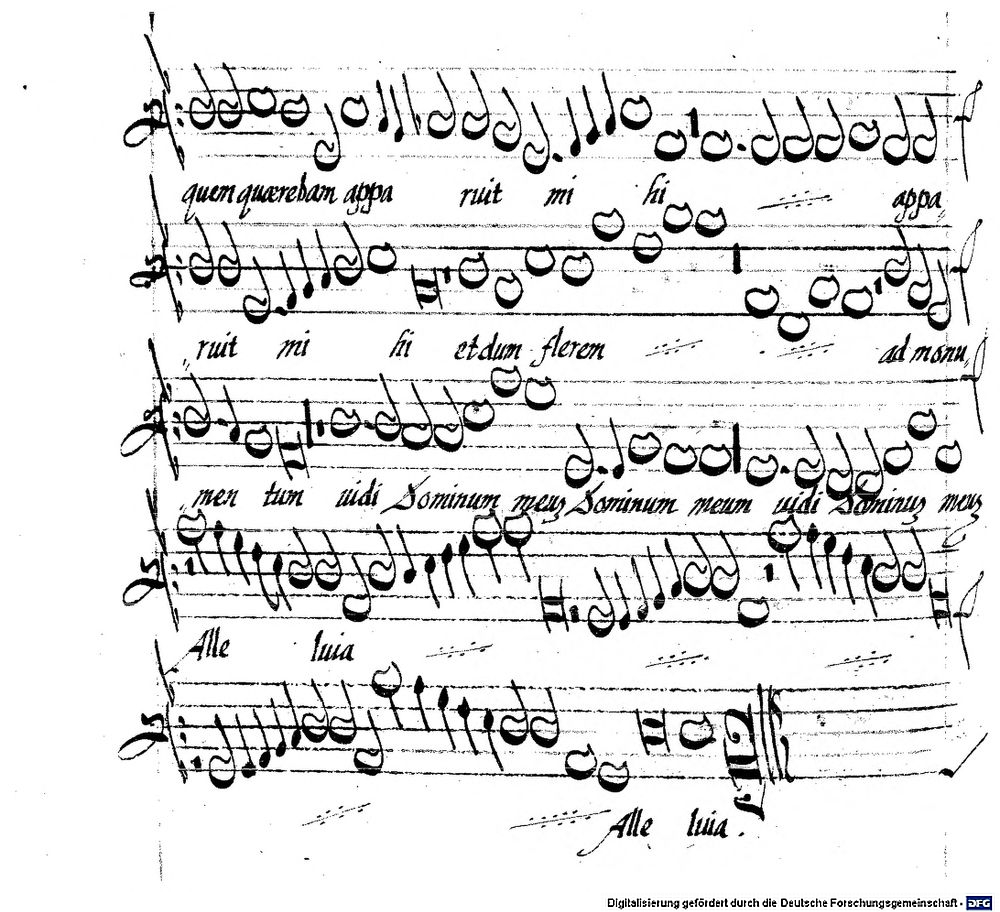 quem quærebam appa ruit mi hi appa
ruit mi hi et dum flerem ad monu
men tum uidi Dominum meuz Dominum meum uidi Dominuz meuz
Alle luia
Alle luia.
Digitalisierung gefördert durch die Deutsche Forschungsgemeinschaft - DFG